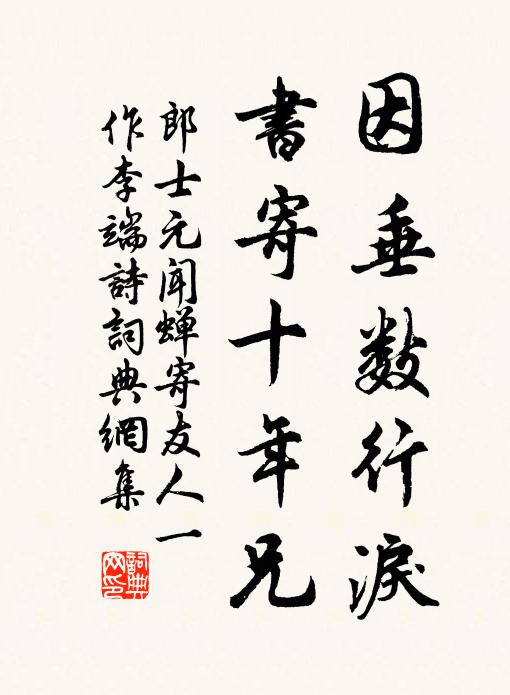 因垂数行淚
書寄十年兄
郎士元闻蝉寄友人一
作李端詩詞典網集
詞典網印